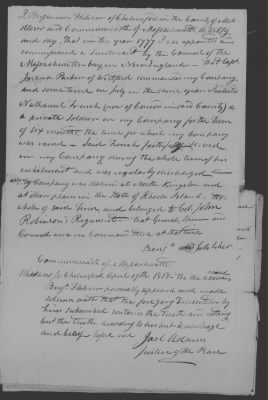 I Benjamin Fletcher of Chelmsford in the County of Mid
dlesex and Commonwealth of Massachusetts do testify
and say that in the year 1777 I was appointed and
commissioned a Lieutenant by the Council of the
Massachusetts-bay in New England - that Capt
Joshua Parker of Westford commanded my Company,
and sometime in July in the same year I enlisted
Nathaniel French (now of County) as
a private Soldier in my Company for the term
of six months, the time for which my Company
was raised - Said French faithfully served
in my Company during the whole term of his
enlistment and was regularly discharged
My Company was stationed at North Kingston and
at other places in the State of Rhode Island, the
whole of said term, and belonged to Col. John
Robinson's Regiment - that General Spencer and
Cornell were in Command there at that time
Benj. Fletcher
Commonwealth of Massachusetts
Middlesex Ss. Chelmsford April 17th 1818. The above named
Benj. Fletcher personally appeared and made
solemn oath that the foregoing deposition by
him subscribed contains the truth and nothing
but the truth according to his best knowledge
and belief before me Joel Adams
Justice of the Peace